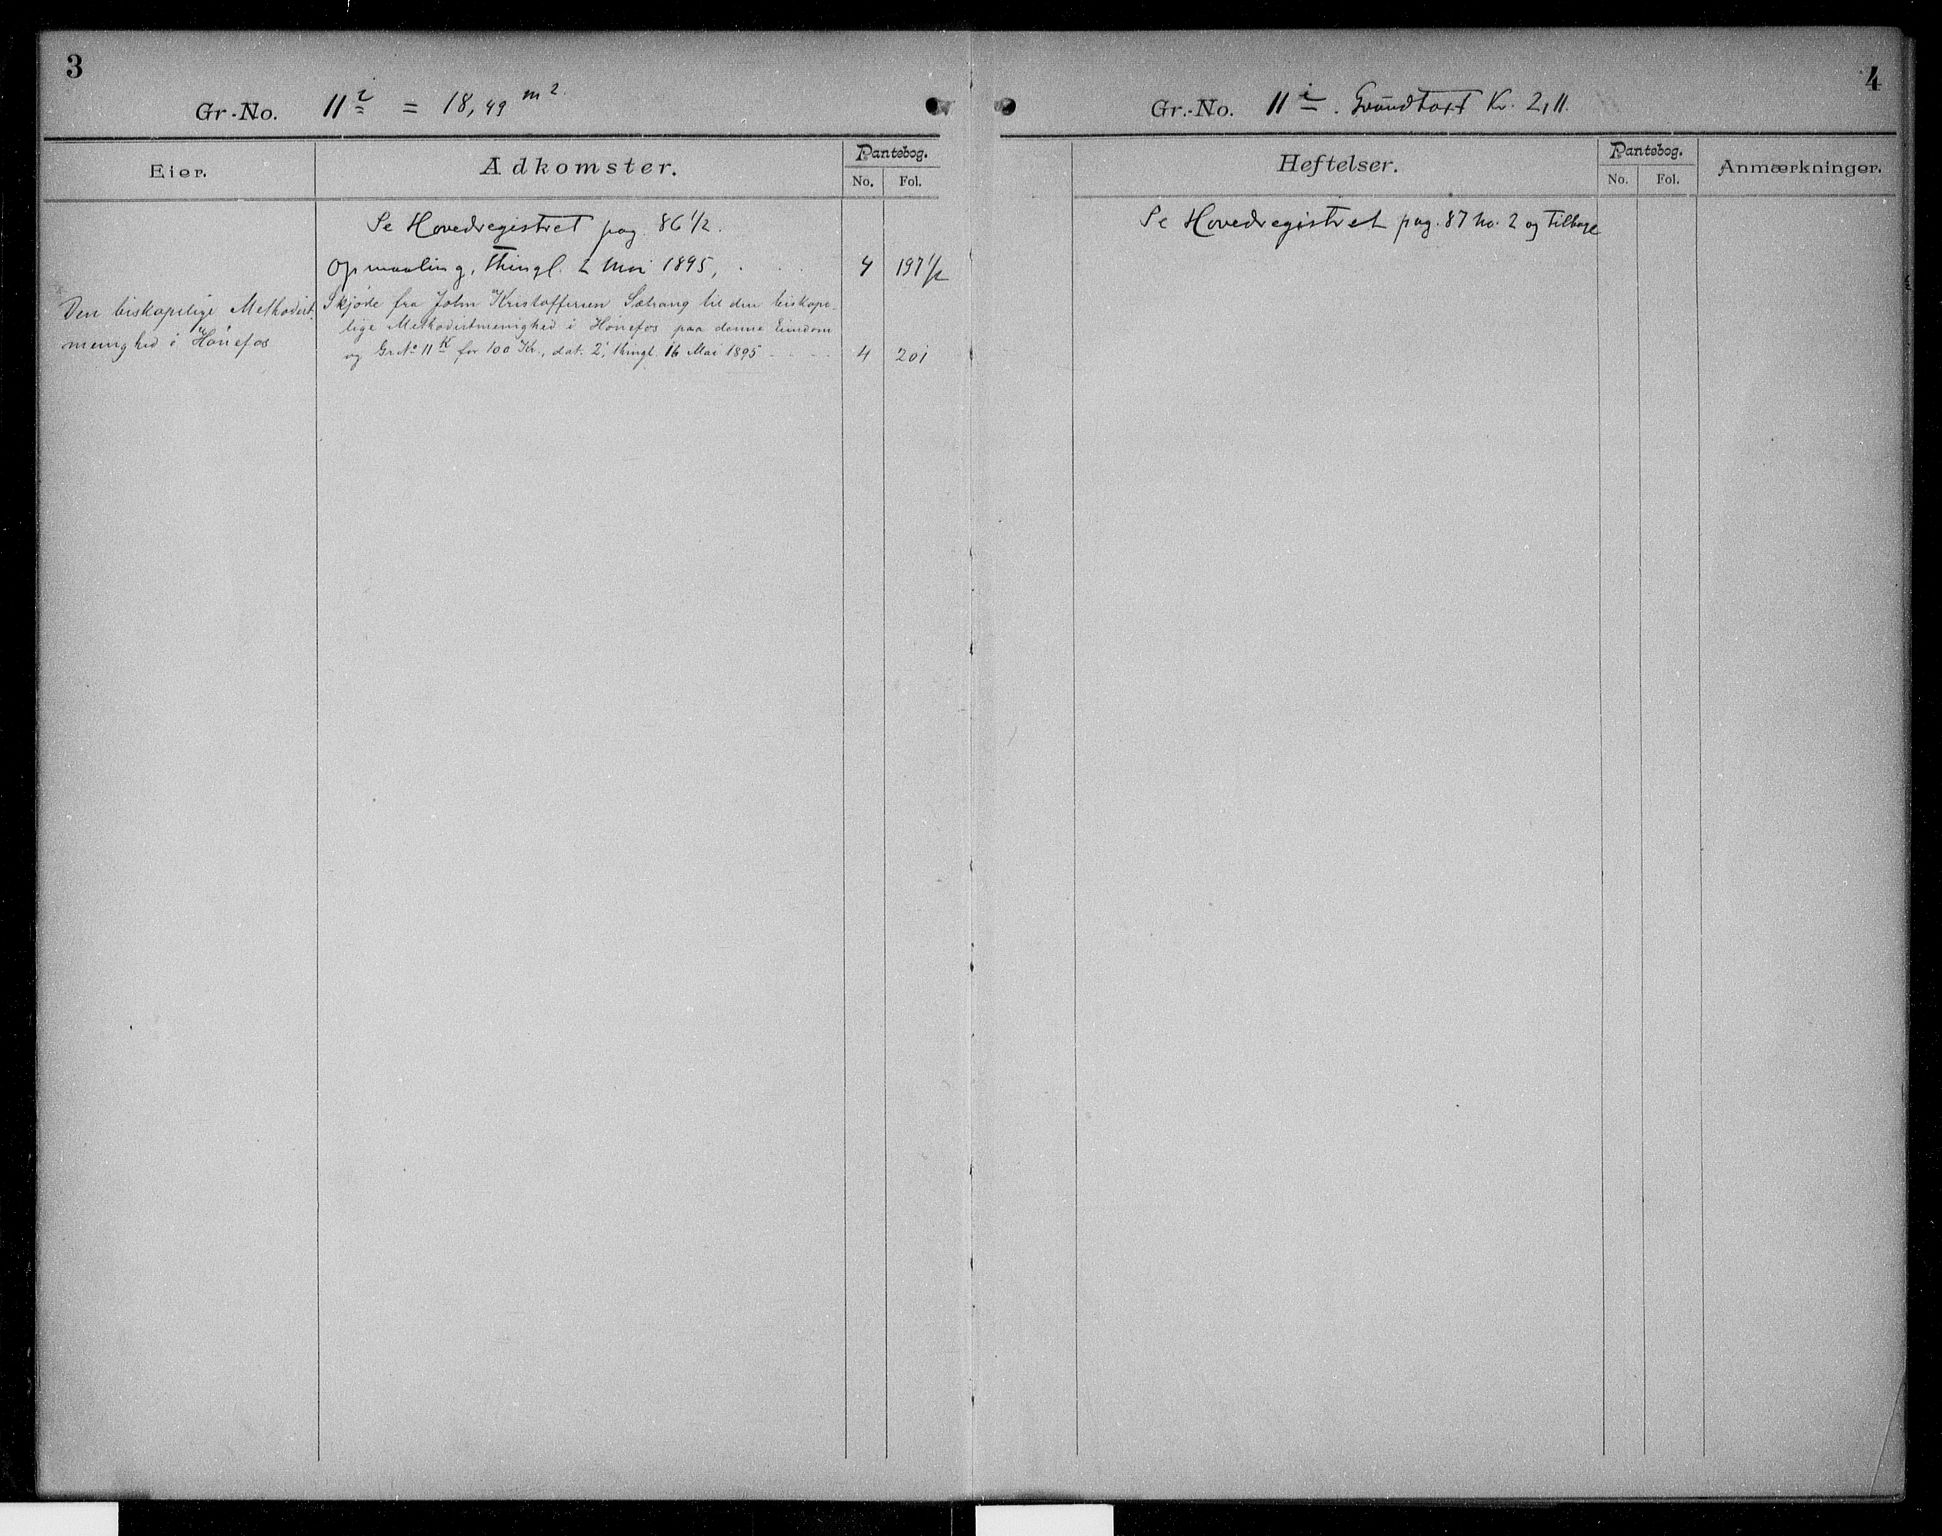 3
Gr.-No. 11 i = 18,49 m²
Eier. Adkomster. Pantebog.
No. Fol.
Se Hovedregistret pag. 86 1/2.
Opmaaling, thingl. 2 Mai 1895, . . . 4 197 1/2
Den biskopelige Methodist- Skjøde fra John Kristoffersen Sætrang til den biskope-
menighed i Hønefos lige Methodistmenighed i Hønefos paa denne Eiendom
og Gr. No 11 k for 100 Kr., dat. 2, thingl. 16 Mai 1895 . . . 4 201
4
Gr.-No. 11 i. Grundtaxt Kr. 2,11.
Heftelser. Pantebog. Anmærkninger.
No. Fol.
Se Hovedregistret pag. 87 No. 2 og Tilbage